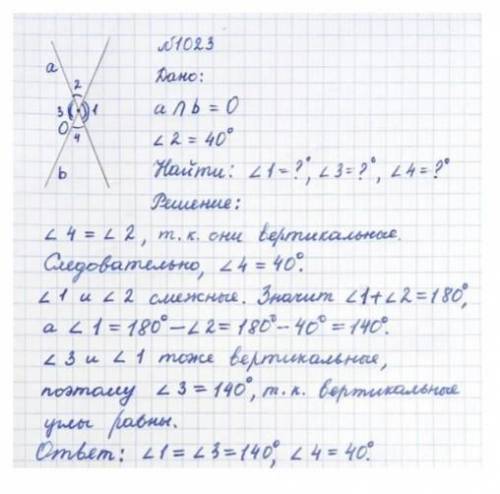 №1023
Дано:
a
2
3
1
O
4
b
a ∩ b = O
∠2 = 40°
Найти: ∠1=?°, ∠3=?°, ∠4=?°
Решение:
∠4 = ∠2, т.к. они вертикальные.
Следовательно, ∠4 = 40°.
∠1 и ∠2 смежные. Значит ∠1+∠2=180°,
а ∠1 = 180° − ∠2 = 180° − 40° = 140°.
∠3 и ∠1 тоже вертикальные,
поэтому ∠3 = 140°, т.к. вертикальные
углы равны.
Ответ: ∠1 = ∠3 = 140°, ∠4 = 40°.